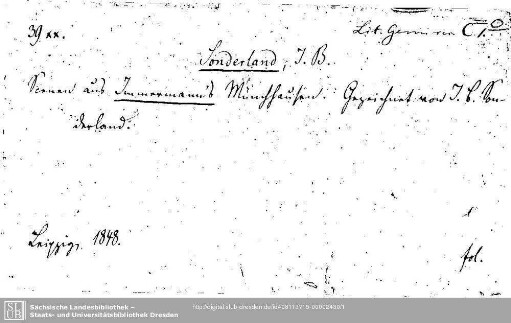 39 xx.
Lit. Germ. rec. C 1.
Sonderland, J. B.
Scenen aus Immermann's Münchhausen. Gezeichnet von J. B. Son-
derland.
Leipzig, 1848.
fol.
Sächsische Landesbibliothek –
Staats- und Universitätsbibliothek Dresden